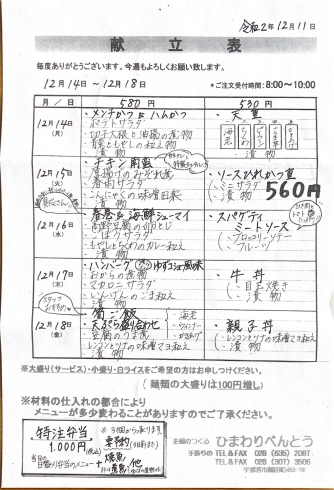 令和2年12月11日
献立表
毎度ありがとうございます。今週もよろしくお願い致します。
12月14日～12月18日
*ご注文受付時間:8:00～10:00
月/日
580円
530円
12月14日
(月)
・メンチかつ & ハムかつ
・ポテトサラダ
・切干大根と油揚の煮物
・豚ともやしの炒め物
・漬物
・天重
海老
・漬物
12月15日
(火)
・チキン南蛮
・厚揚げのみぞれ煮
・春雨サラダ
・こんにゃくの味噌田楽
・漬物
・ソースひれかつ重
(ミニサラダ
・漬物
560円
12月16日
(水)
・春巻 & 海鮮シューマイ
・高野豆腐の卵とじ
・ごぼうサラダ
・もやしとちくわのカレー和え
・漬物
・スパゲティ
ミートソース
(・ブロッコリーソテー
・フルーツ
12月17日
(木)
・ハンバーグ ゆずコショー風味
・おからの煮物
・マカロニサラダ
・いんげんのごま和え
・漬物
・牛丼
・目玉焼き
・漬物
スタッフ
おすすめ
12月18日
(金)
・筍ご飯
・天ぷら盛り合わせ
・豆腐のうま煮
・漬物
・海老
・ウインナー
・かき揚げ
・親子丼
・漬物
*大盛り(サービス)・小盛り・白ライスをご希望の方はお申しつけください。
(麺類の大盛りは100円増し)
*材料の仕入れの都合により
メニューが多少変わることがありますのでご了承ください。
特注弁当
1,000円(税込)
当日の
日替り弁当のメニュー
+
*3個から承ります
要予約(3日前迄)
焼魚
または煮魚
その他
主婦のつくる ひまわりべんとう
TEL&FAX 028(635)2087
TEL&FAX 028(307)3506